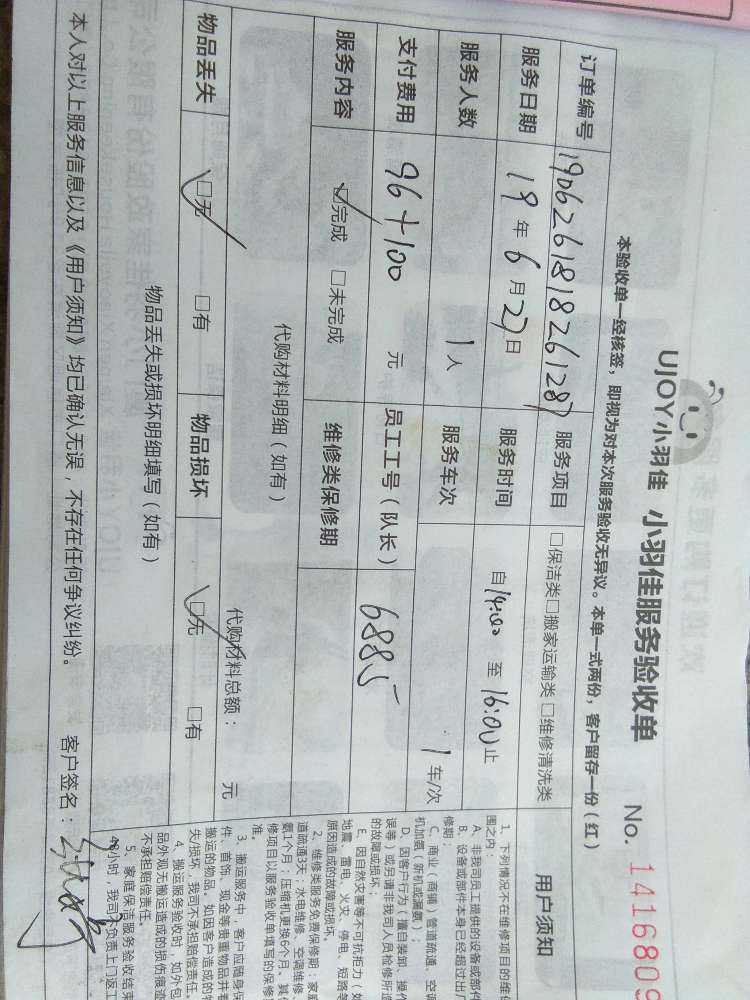 UJOY小羽佳 小羽佳服务验收单 No. 1416809
本验收单一经核签，即视为对本次服务验收无异议。本单一式两份，客户留存一份（红）
订单编号 190626181826128 服务项目 □保洁类□搬家运输类□维修清洗类
服务日期 19年6月27日 服务时间 自14:00至16:00止
服务人数 1人 服务车次 1车/次
支付费用 96+100 元 员工工号（队长） 6885
服务内容 ☑完成 □未完成 维修类保修期
代购材料明细（如有） 代购材料总额： 元
物品丢失 ☑无 □有 物品损坏 ☑无 □有
物品丢失或损坏明细填写（如有）
本人对以上服务信息以及《用户须知》均已确认无误，不存在任何争议纠纷。 客户签名：
用户须知
1、下列情况不在维修项目的维
围之内：
A、非我司员工提供的设备或部件
B、设备或部件本身已经超过出厂
修期；
C、商业（商铺）管道疏通、空调
机加氨（新机或漏氨）；
D、因客户行为（擅自装卸、操作
误等）或另请非我司人员检修所造
的故障或损坏；
E、因自然灾害等不可抗拒力（如
地震、雷电、火灾、停电、短路等
原因造成的故障或损坏。
2、维修类服务免费保修期：家庭
道疏通3天；水电维修、空调维修、
氨1个月；压缩机更换6个月。其他
修项目以服务验收单填写的保修
准。
3、搬运服务中，客户应随身保
件、首饰、现金等贵重物品并看
搬运的物品。如因客户造成的物
失/损坏，我司不承担赔偿责任。
4、搬运服务验收时，如外包
品外观无搬运造成的损伤痕迹
不承担赔偿责任。
5、家庭保洁服务验收结束
48小时，我司不负责上门返工